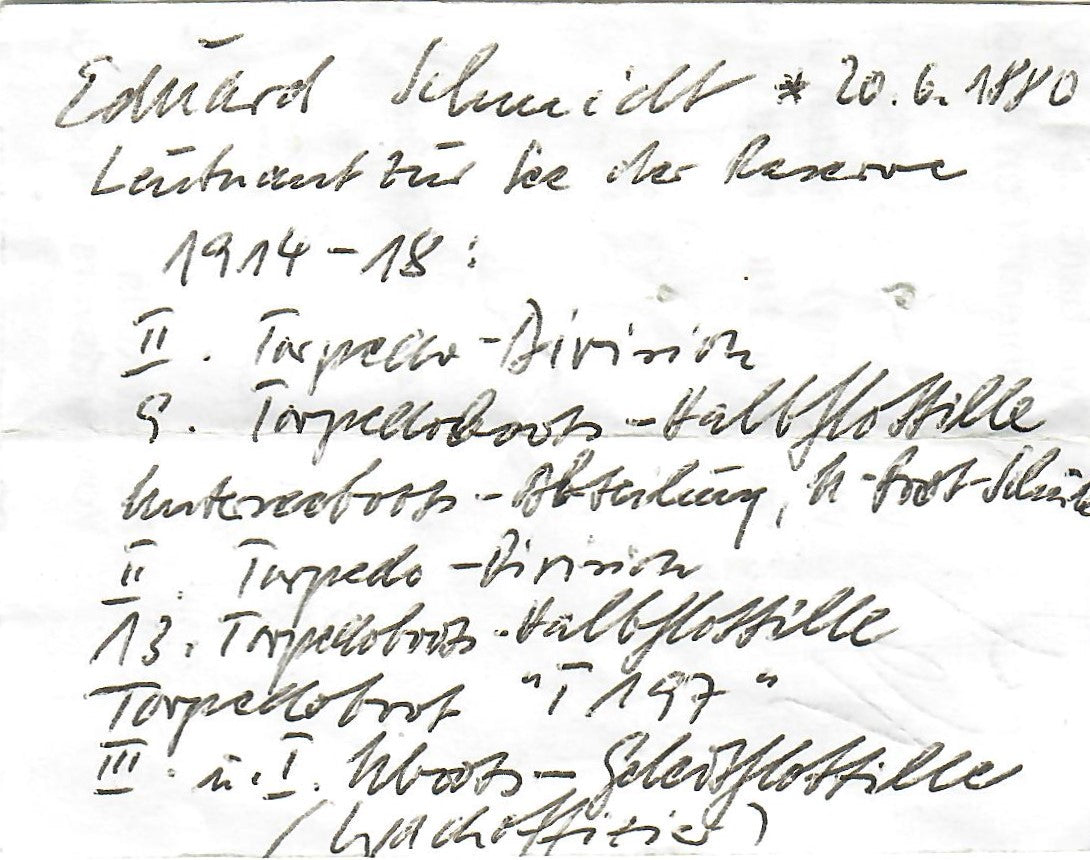 Eduard Schmidt * 20.6.1880
Leutnant zur See der Reserve
1914-18:
II. Torpedo-Division
9. Torpedoboots-Halbflottille
Unterseeboots-Abteilung, U-Boot-Schule
II. Torpedo-Division
13. Torpedoboots-Halbflottille
Torpedoboot "T 197"
III. u. I. Uboots-Geleitflottille
(Wachoffizier)